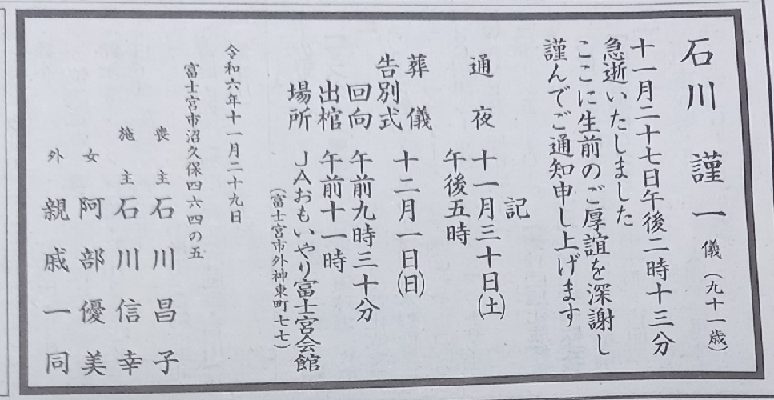 石川 謹一 儀(九十一歳)
十一月二十七日午後二時十三分
急逝いたしました
ここに生前のご厚誼を深謝し
謹んでご通知申し上げます
記
通夜 十一月三十日(土)
午後五時
葬儀
告別式 十二月一日(日)
回向 午前九時三十分
出棺 午前十一時
場所 JAおもいやり富士宮会館
(富士宮市外神東町七七)
令和六年十一月二十九日
富士宮市沼久保四六四の五
喪主 石川昌子
施主 石川信幸
女 阿部優美
外 親戚一同